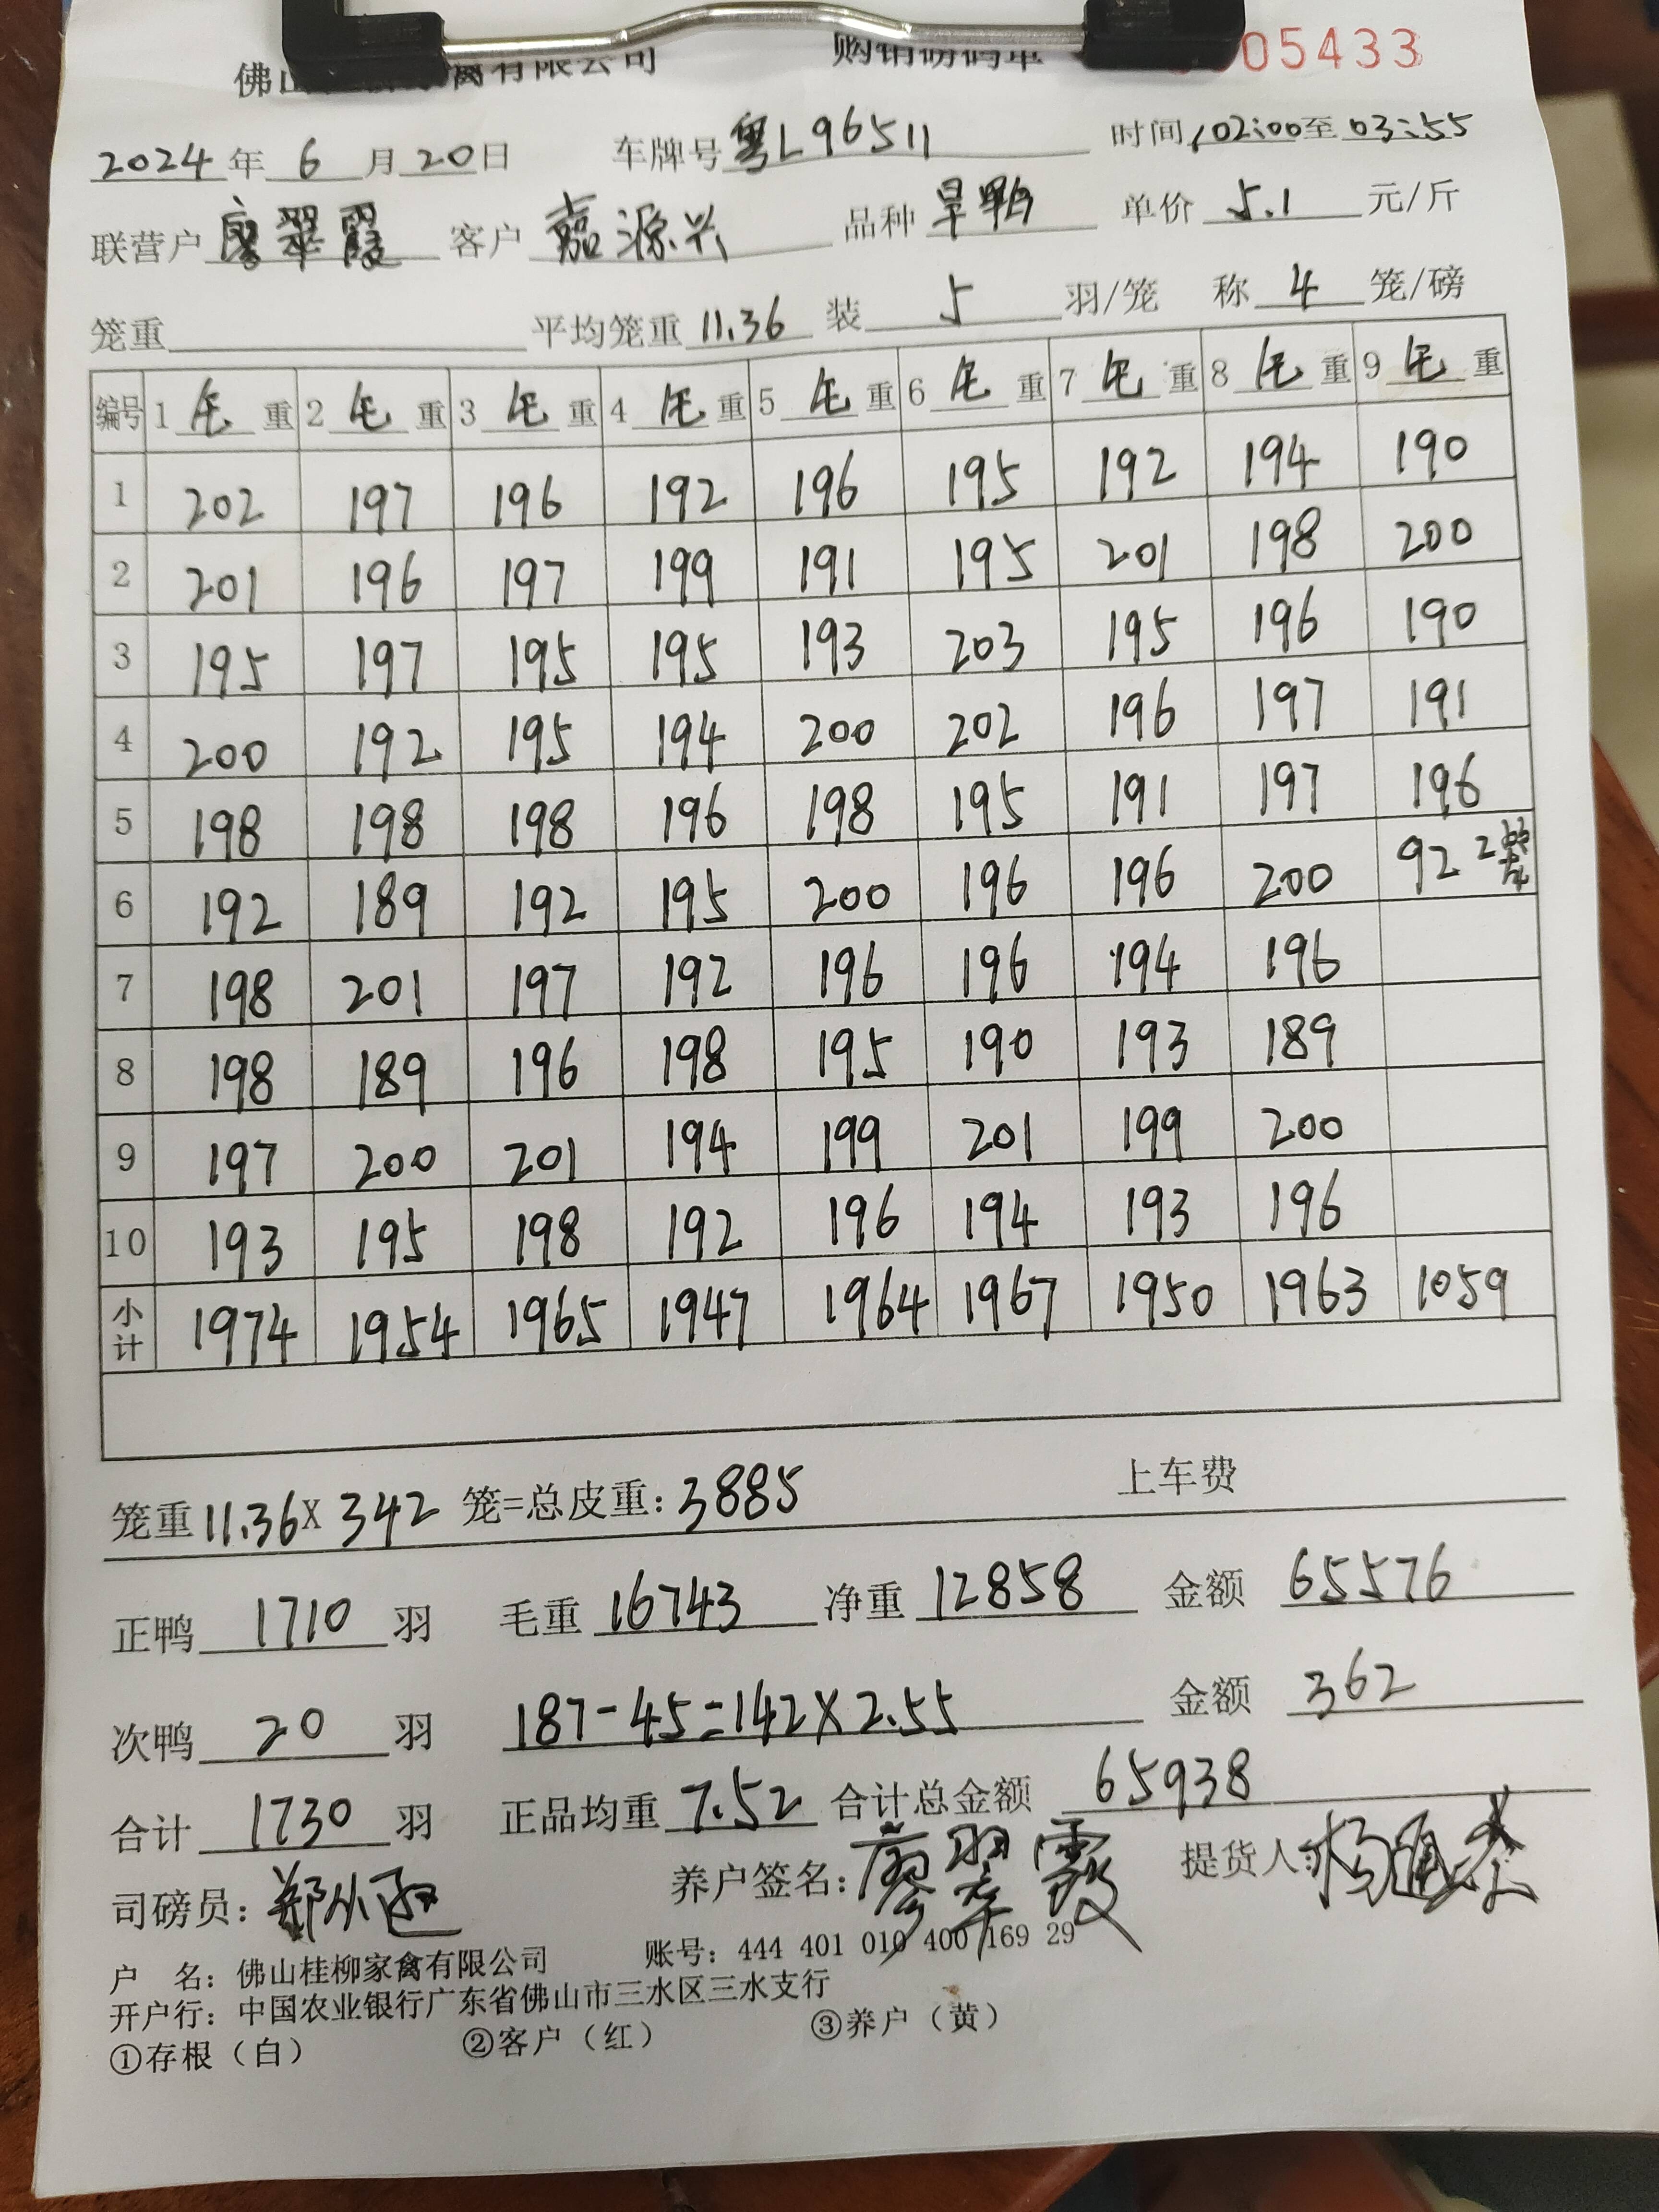 佛山 家禽有限公司 购销磅码单 05433
2024年6月20日 车牌号 粤L96511 时间 02:00至03:55
联营户 廖翠霞 客户 嘉源兴 品种 旱鸭 单价 5.1 元/斤
笼重 平均笼重 11.36 装 5 羽/笼 称 4 笼/磅
编号 1 毛 重 2 毛 重 3 毛 重 4 毛 重 5 毛 重 6 毛 重 7 毛 重 8 毛 重 9 毛 重
1 202 197 196 192 196 195 192 194 190
2 201 196 197 199 191 195 201 198 200
3 195 197 195 195 193 203 195 196 190
4 200 192 195 194 200 202 196 197 191
5 198 198 198 196 198 195 191 197 196
6 192 189 192 195 200 196 196 200 92 2
7 198 201 197 192 196 196 194 196
8 198 189 196 198 195 190 193 189
9 197 200 201 194 199 201 199 200
10 193 195 198 192 196 194 193 196
小计 1974 1954 1965 1947 1964 1967 1950 1963 1059
笼重 11.36X 342 笼=总皮重: 3885 上车费
正鸭 1710 羽 毛重 16743 净重 12858 金额 65576
次鸭 20 羽 187-45=142X2.55 金额 362
合计 1730 羽 正品均重 7.52 合计总金额 65938
司磅员: 养户签名: 廖翠霞 提货人:
户 名: 佛山桂柳家禽有限公司 账号: 444 401 010 400 169 29
开户行: 中国农业银行广东省佛山市三水区三水支行
①存根（白） ②客户（红） ③养户（黄）